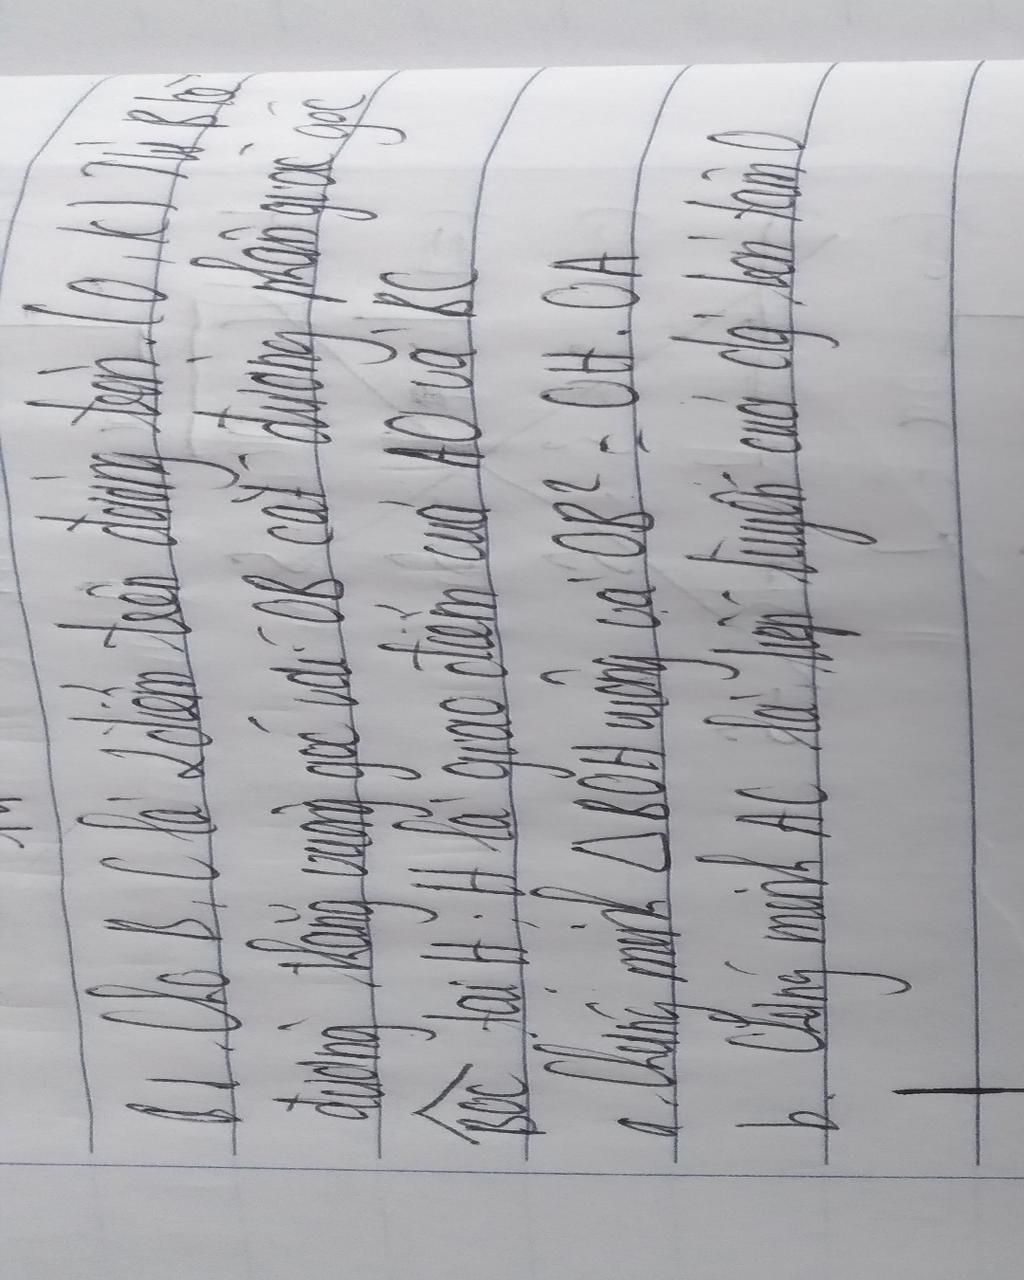 B1. Cho B, C là 2 điểm trên đường tròn. (O, R) Từ B kẻ
đường thẳng vuông góc với OB cắt đường phân giác góc
BOC tại H. H là giao điểm của AO và BC
a. Chứng minh ΔBOH vuông và OB² = OH. OA
b. Chứng minh AC là tiếp tuyến của đg tròn tâm O